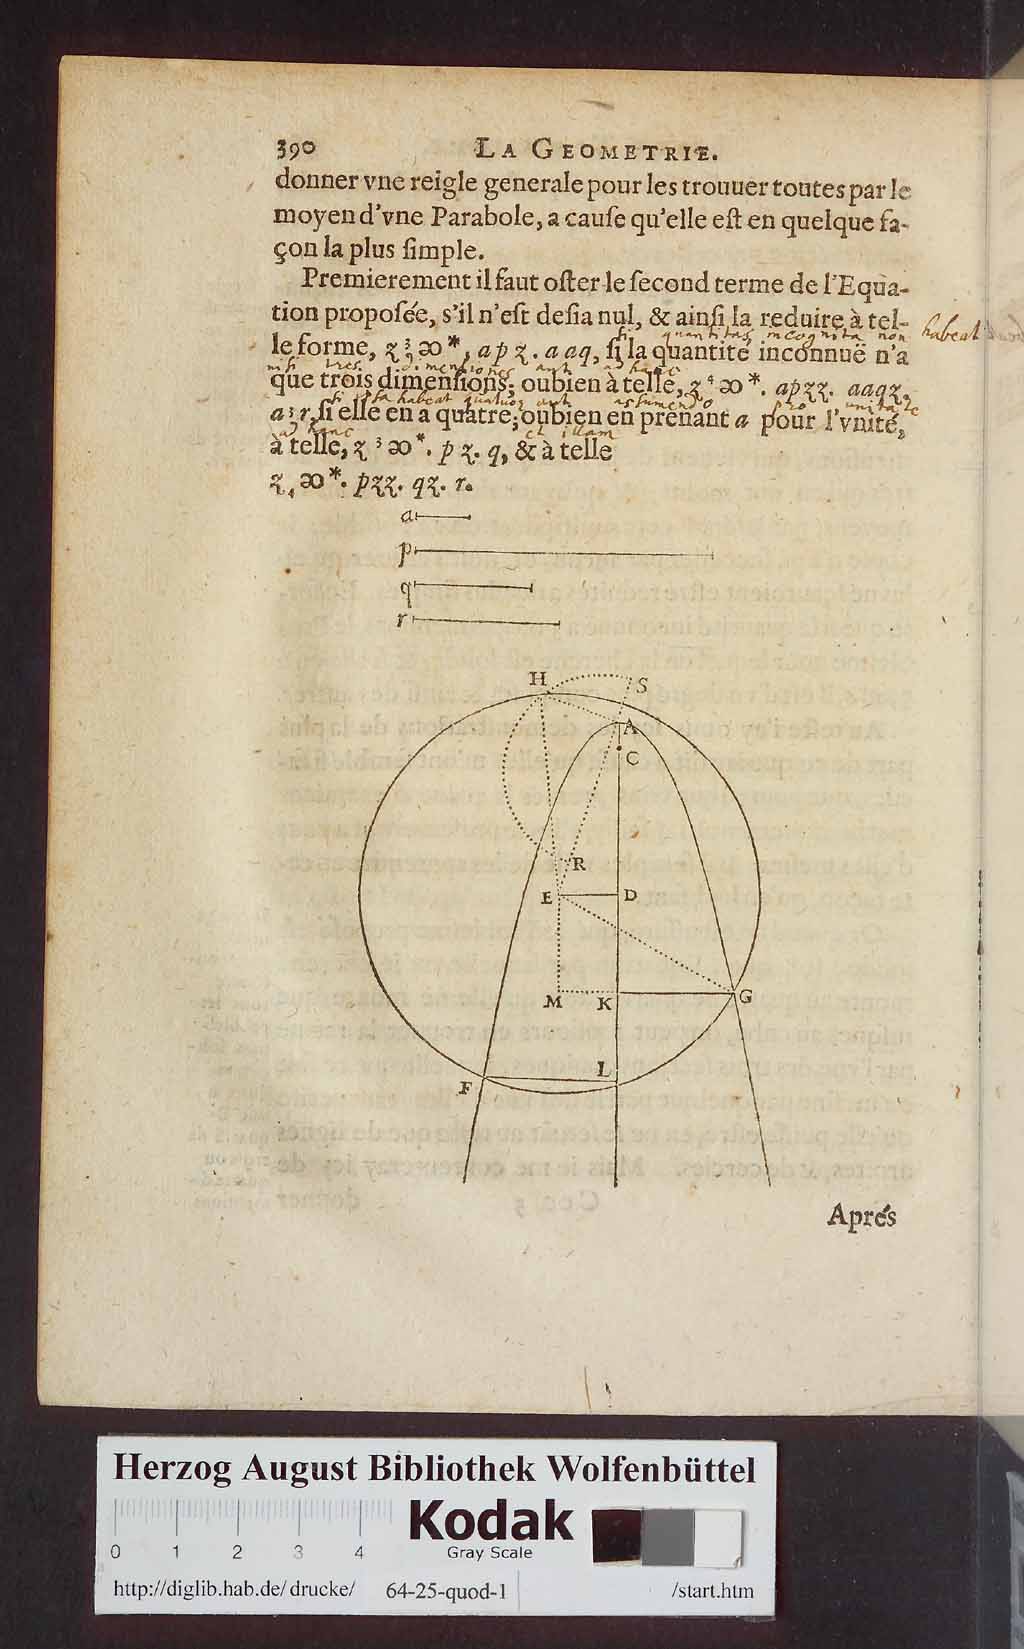 390 LA GEOMETRIE.
donner vne reigle generale pour les trouuer toutes par le
moyen d'vne Parabole, a cauſe qu'elle eſt en quelque fa-
çon la plus ſimple.
Premierement il faut oſter le ſecond terme de l'Equa-
tion propoſée, s'il n'eſt deſia nul, & ainſi la reduire à tel-
si quantitas incognita non habeat
le forme, z³ ꝏ *, apz. aaq, ſi la quantité inconnuë n'a
nisi tres dimensiones aut ad hanc
que trois dimenſions; oubien à telle, z⁴ ꝏ *. apzz. aaqz.
si ipsa habeat quatuor aut assumendo pro unitate
a³r, ſi elle en a quatre; oubien en prenant a pour l'vnité,
ad hanc et illam
à telle, z³ ꝏ *. pz. q, & à telle
z₄ ꝏ *. pzz. qz. r.
a
p
q
r
H
S
A
C
R
E
D
M
K
G
L
F
Aprés
Herzog August Bibliothek Wolfenbüttel
Kodak
Gray Scale
0 1 2 3 4
http://diglib.hab.de/drucke/ 64-25-quod-1 /start.htm